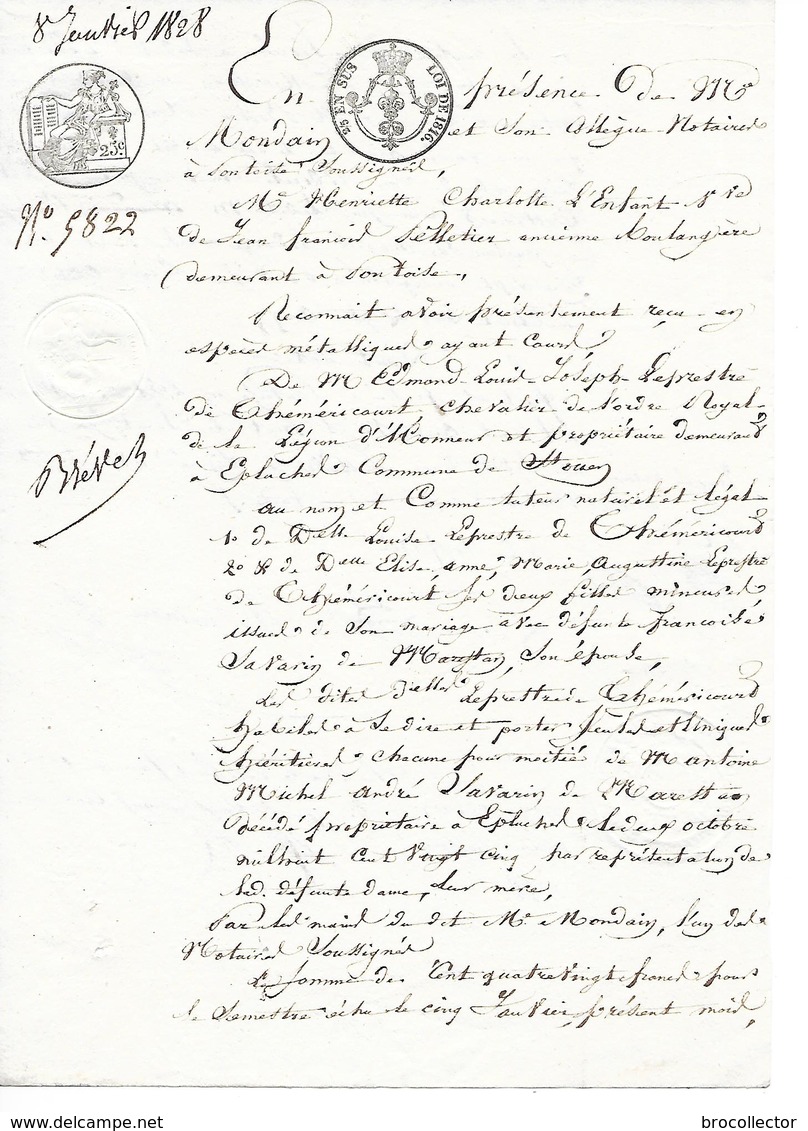 8 Janvier 1828
25 EN SUS LOI DE 1816.
25c.
No. 5822
Brevet
En présence de Me
Mondain et son Collègue Notaires
à Pontoise soussignés,
Me Henriette Charlotte L'Enfant Vve
de Jean françois Pelletier ancienne boulangère
demeurant à Pontoise,
Reconnait avoir présentement reçu en
espèces métalliques ayant cours,
De M Edmond Louis Joseph Leprestre
de Théméricourt, chevalier de l'ordre Royal
de la Légion d'Honneur et propriétaire demeurant
à Epluches Commune de St ouen
au nom et Comme tuteur naturel et légal
1o de Delle Louise Leprestre de Théméricourt
2o & de Delle Elise, anne, Marie, Augustine Leprestre
de Théméricourt ses deux filles mineures
issues de son mariage avec défunte françoise
Savarin de Marestan, son épouse,
Les dites Dlles Leprestre de Théméricourt
habiles à se dire et porter seules et Uniques
héritières, chacune pour moitié de M antoine
Michel andré Savarin de Marestan
décédé propriétaire à Epluches le deux octobre
mil huit Cent Vingt Cinq, par représentation de
lad. défunte dame, leur mère,
Par les mains du dit Me. Mondain, l'un des
Notaires soussignés
La somme de Cent quatre vingt francs pour
le semestre échu le cinq Janvier, présent mois,
www.delcampe.net
brocollector